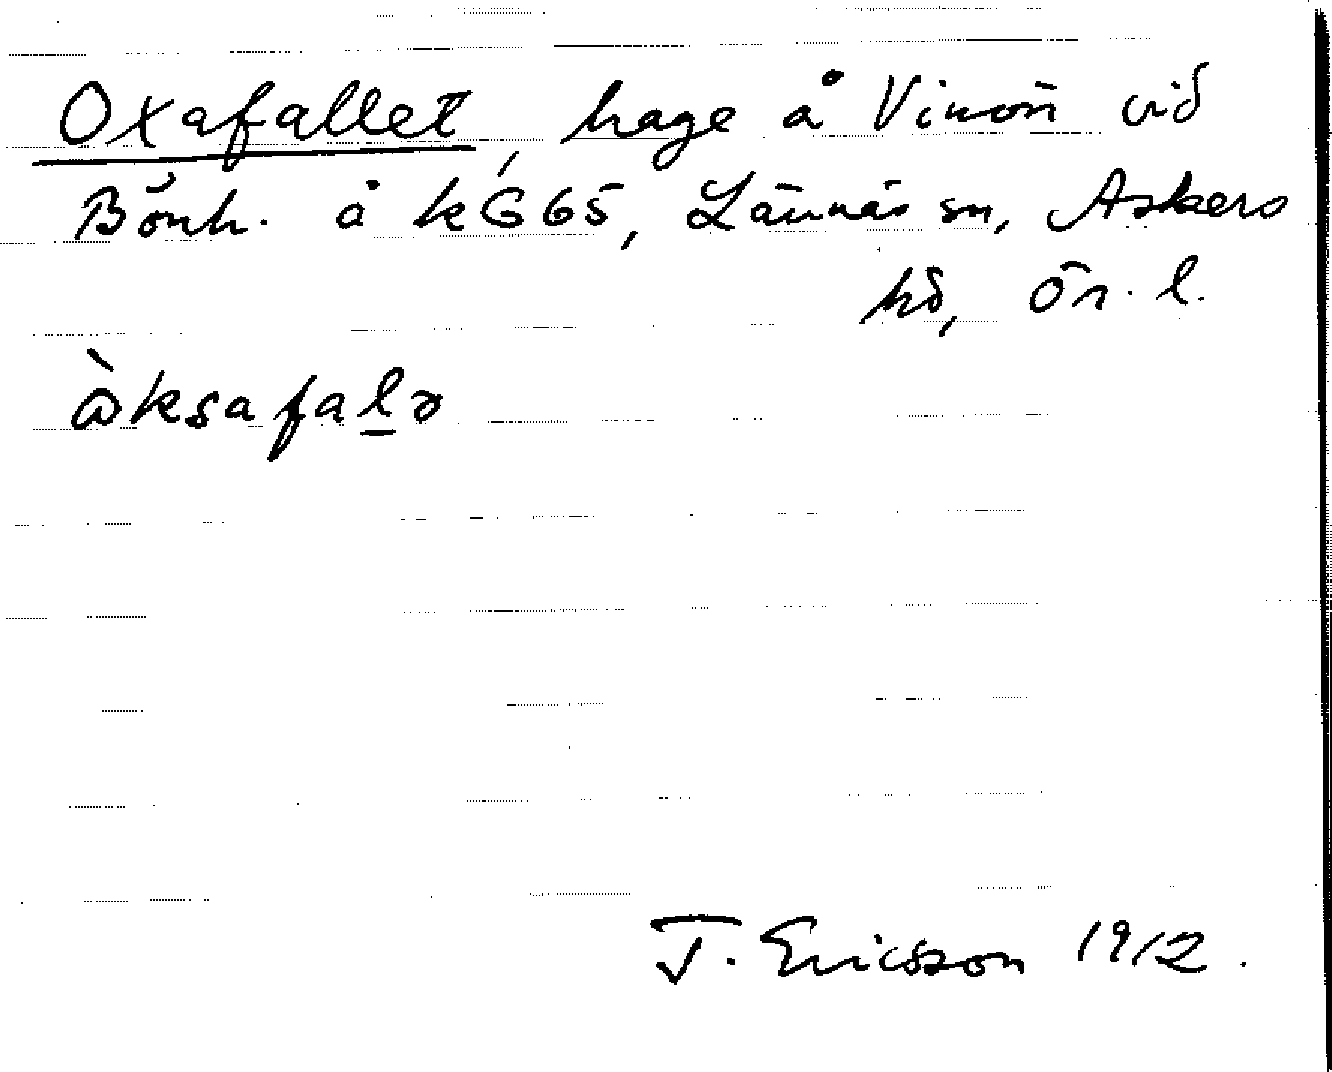 Oxafallet, hage å Vinön vid
Bönh. å k 665, Lännäs sn, Askers
hd, Ör. l.
àksafalə
T. Ericsson 1912.